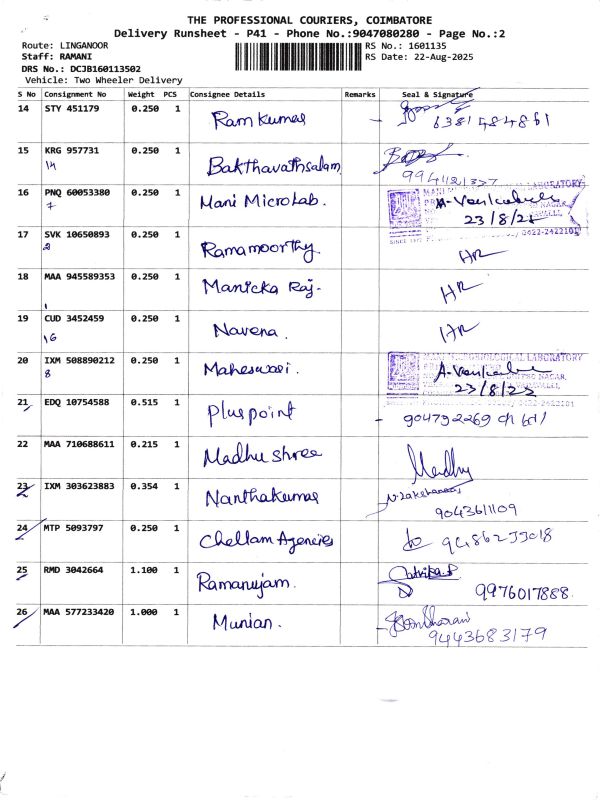 THE PROFESSIONAL COURIERS, COIMBATORE
Delivery Runsheet - P41 - Phone No.:9047080280 - Page No.:2
Route: LINGANOOR RS No.: 1601135
Staff: RAMANI RS Date: 22-Aug-2025
DRS No.: DCJB160113502
Vehicle: Two Wheeler Delivery
S No Consignment No Weight PCS Consignee Details Remarks Seal & Signature
14 STY 451179 0.250 1 Ram kumar
15 KRG 957731 0.250 1 Bakthavathsalam
14
16 PNQ 60053380 0.250 1 Mani Micro Lab.
7 23/8/25
17 SVK 10650893 0.250 1 Ramamoorthy HR
2
18 MAA 945589353 0.250 1 Manicka Raj. HR
1
19 CUD 3452459 0.250 1 Navena. HR
16
20 IXM 508890212 0.250 1 Maheswari.
8
21 EDQ 10754588 0.515 1 Pluspoint
22 MAA 710688611 0.215 1 Madhu shree Madhu
23 IXM 303623883 0.354 1 Nanthakumar
9043611109
24 MTP 5093797 0.250 1 Chellam Agencies
25 RMD 3042664 1.100 1 Ramanujam.
9976017888
26 MAA 577233420 1.000 1 Munian.
9443683179